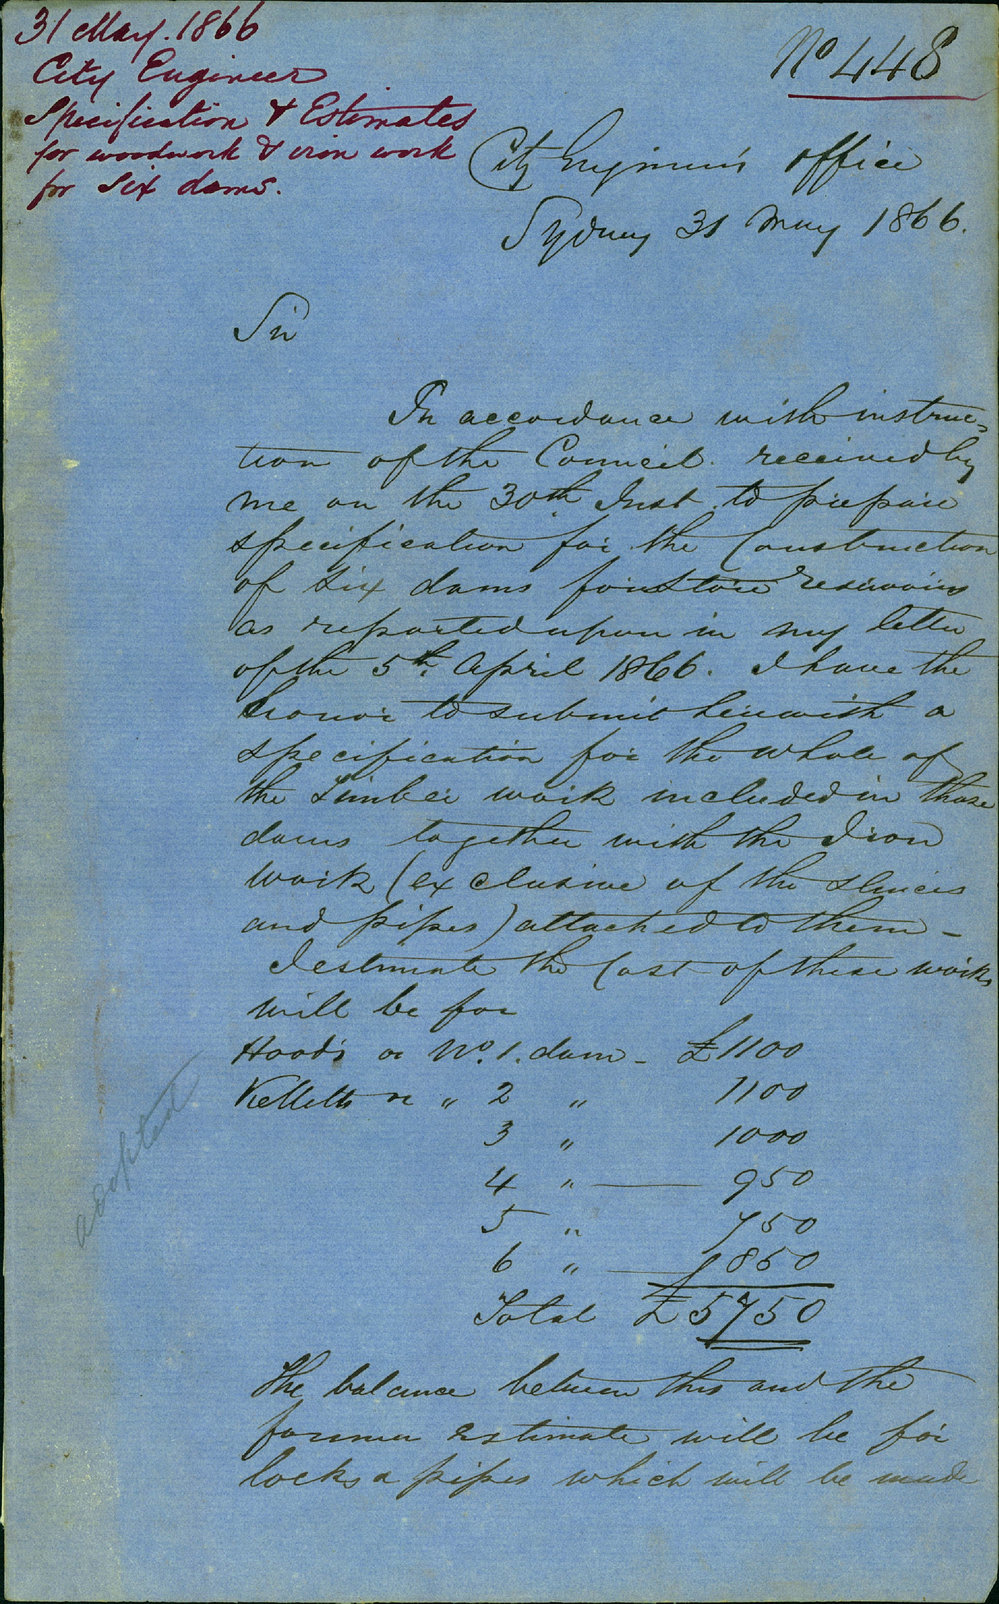 31 May. 1866
City Engineer
Specification & Estimates
for woodwork & iron work
for six dams.
No 448
City Engineer's office
Sydney 31 May 1866.
Sir
In accordance with instruc=
tion of the Council. received by
me on the 30th Inst. to prepare
specification for the Construction
of six dams for Store reservoirs
as reported upon in my letter
of the 5th. April 1866. I have the
honor to submit herewith a
specification for the whole of
the Timber work included in these
dams together with the Iron
work (exclusive of the sluices
and pipes) attached to them -
I estimate the Cost of these works
will be for
Hood's or No. 1. dam - £1100
Kelletts or " 2 " 1100
3 " 1000
4 " — 950
5 " 750
6 " — 850
Total £5750
adopted
The balance between this and the
former estimate will be for
locks & pipes which will be made